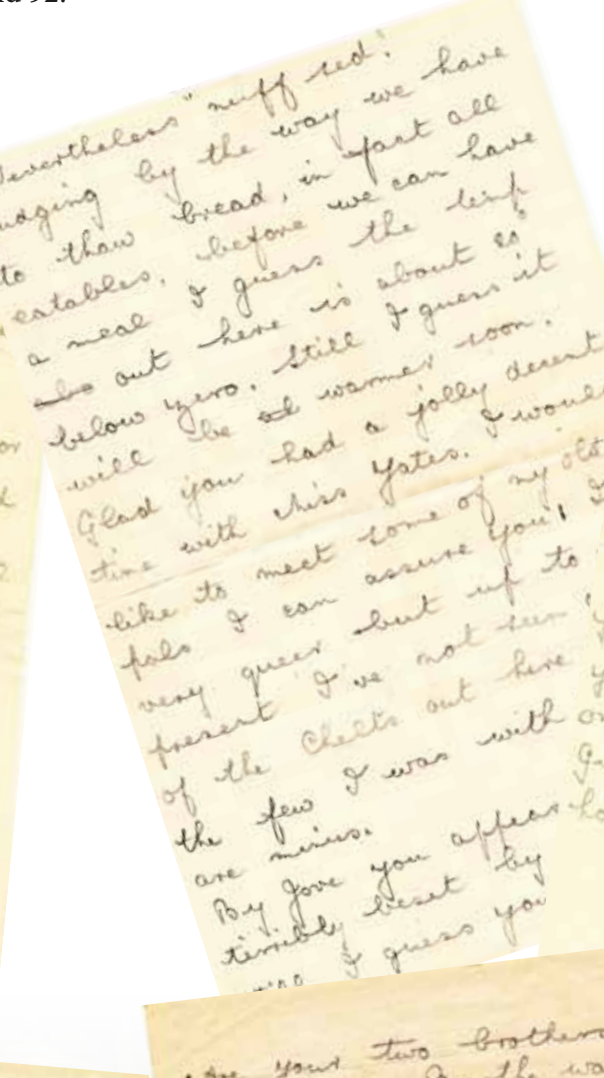 nd 92.
Nevertheless" nuff sed!
udging by the way we have
to thaw bread, in fact all
eatables, before we can have
a meal I guess the temp
out here is about 20°
below zero. Still I guess it
will be warmer soon.
Glad you had a jolly decent
time with Miss Yates. I would
like to meet some of my old
pals I can assure you! I
very queer but up to
present I've not seen
of the Chelts out here
the few I was with
are minus.
By Jove you appear
terribly beset by
I guess you
your two brothers
the wa